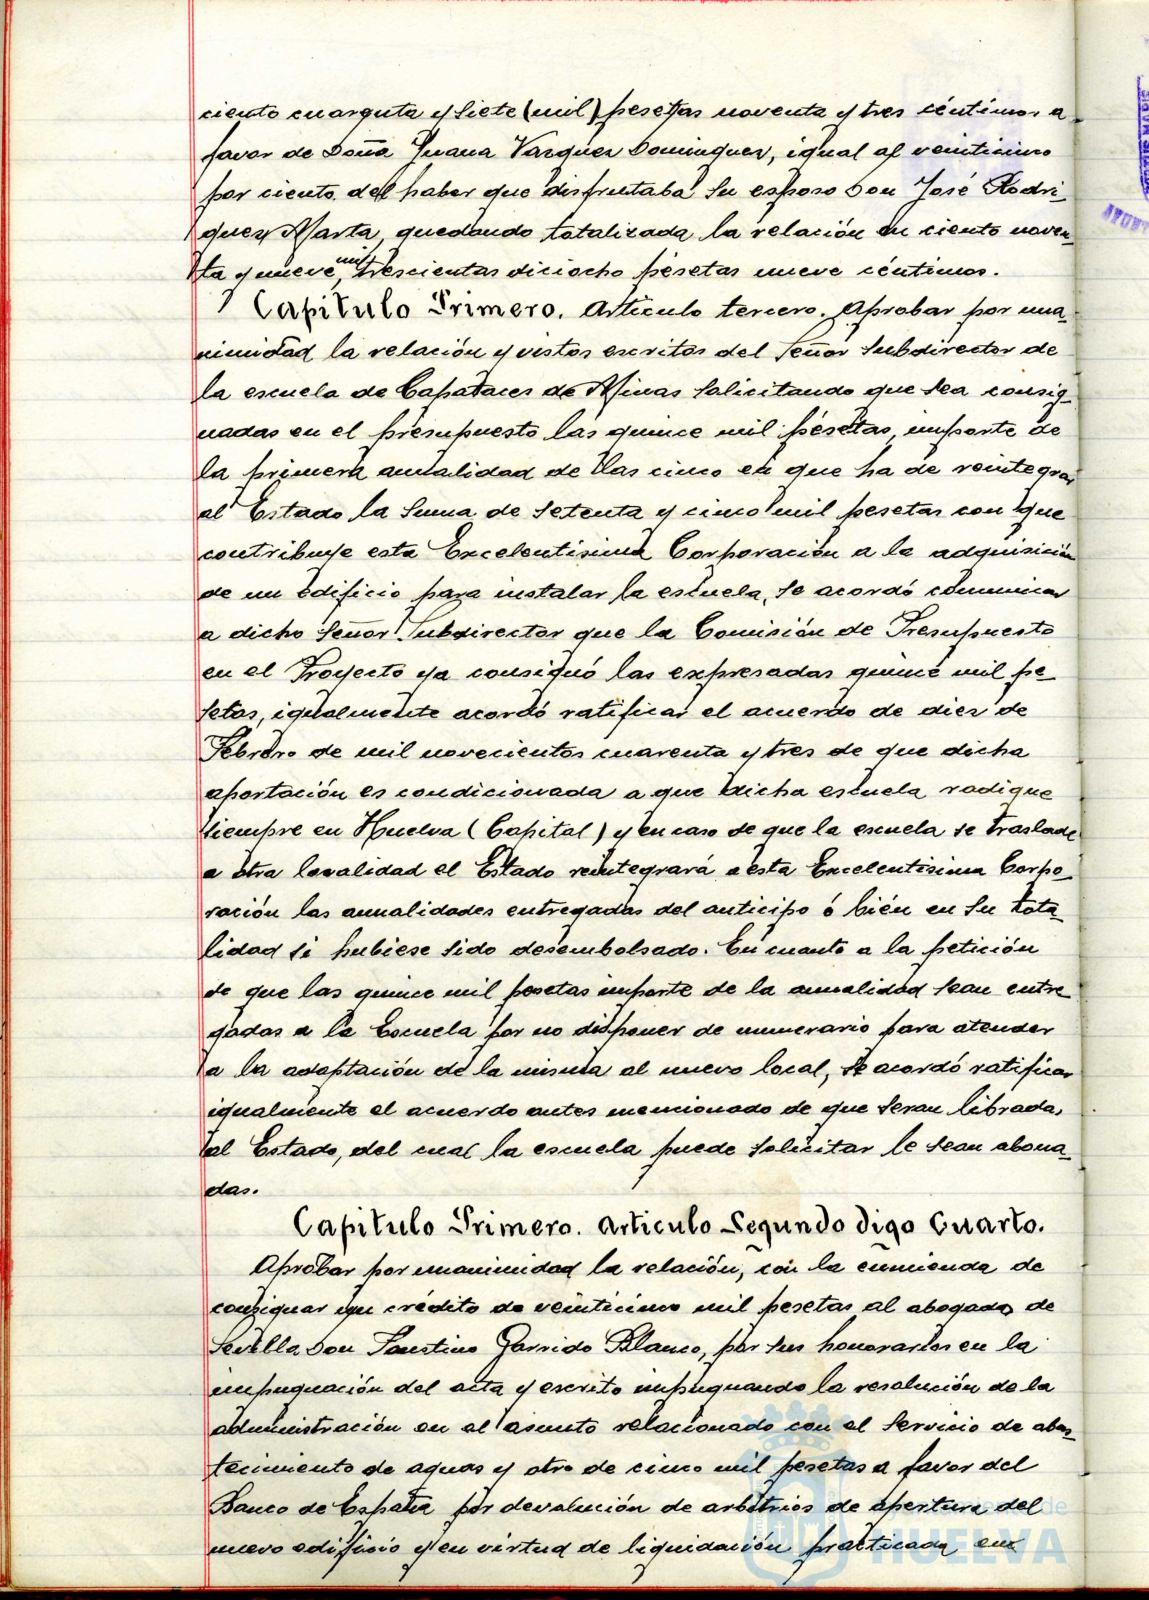 ciento cuarenta y siete (mil) pesetas noventa y tres céntimos a
favor de Doña Juana Vazquez Dominguez, igual al veinticinco
por ciento del haber que disfrutaba su esposo Don José Rodri-
guez Marta, quedando totalizada la relación en ciento noven-
ta y nueve mil, trescientas diciocho pesetas nueve céntimos.
Capitulo Primero. Articulo tercero. Aprobar por una-
nimidad la relación y vistos escritos del Señor Subdirector de
la escuela de Capataces de Minas solicitando que sea consig-
nadas en el presupuesto las quince mil pesetas, importe de
la primera anualidad de las cinco en que ha de reintegrar
al Estado la suma de setenta y cinco mil pesetas con que
contribuye esta Excelentisima Corporación a la adquisición
de un edificio para instalar la escuela, se acordó comunicar
a dicho Señor Subdirector que la Comisión de Presupuesto
en el Proyecto ya consignó las expresadas quince mil pe-
setas, igualmente acordó ratificar el acuerdo de diez de
Febrero de mil novecientos cuarenta y tres de que dicha
aportación es condicionada a que dicha escuela radique
siempre en Huelva (Capital) y en caso de que la escuela se traslade
a otra localidad el Estado reintegrará a esta Excelentisima Corpo-
ración las anualidades entregadas del anticipo ó bién en su tota-
lidad si hubiese sido desembolsado. En cuanto a la petición
de que las quince mil pesetas importe de la anualidad sean entre-
gadas a la Escuela por no disponer de numerario para atender
a la adaptación de la misma al nuevo local, se acordó ratificar
igualmente el acuerdo antes mencionado de que seran libradas
al Estado, del cual la escuela puede solicitar le sean abona-
das.
Capitulo Primero. Articulo Segundo digo Cuarto.
Aprobar por unanimidad la relación, con la enmienda de
consignar un crédito de veinticinco mil pesetas al abogado de
Sevilla Don Faustino Garrido Blanco, por sus honorarios en la
impugnación del acta y escrito impugnando la resolución de la
administración en el asunto relacionado con el Servicio de abas-
tecimiento de aguas y otro de cinco mil pesetas a favor del
Banco de España por devolución de arbitrios de apertura del
nuevo edificio y en virtud de liquidación practicada en
HUELVA